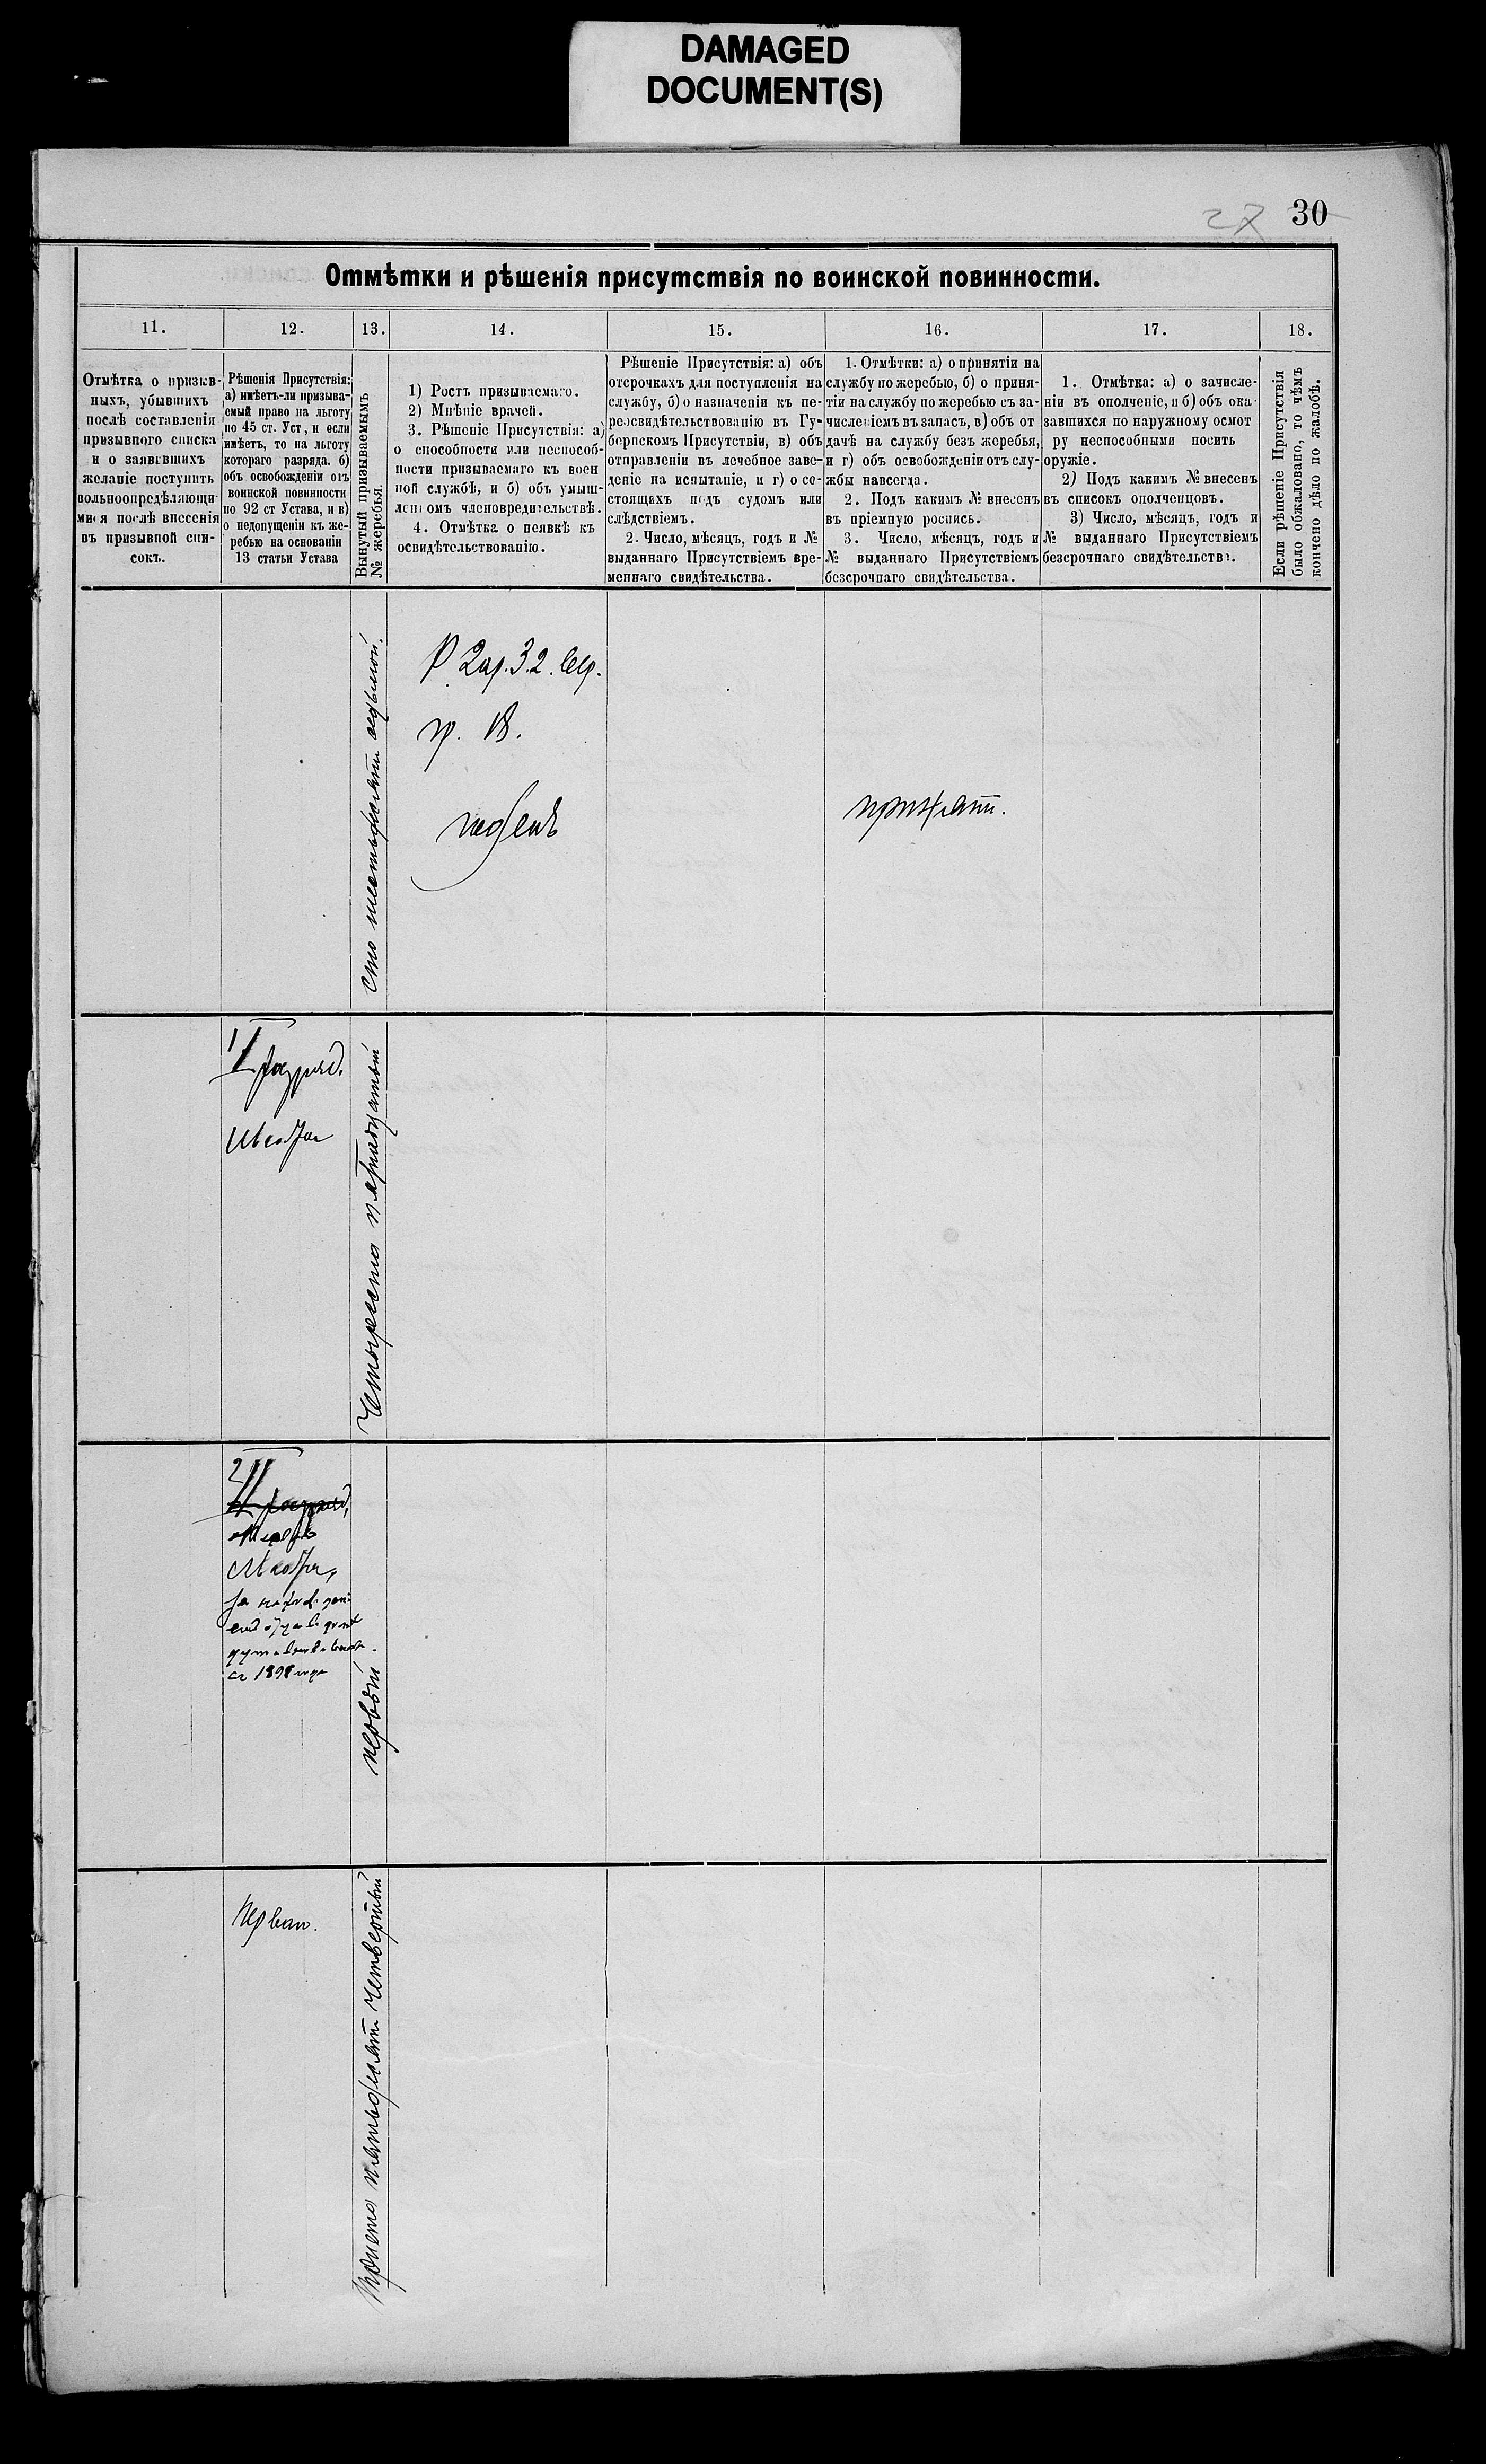 DAMAGED
DOCUMENT(S)
27 30
Отмѣтки и рѣшенія присутствія по воинской повинности.
11. 12. 13. 14. 15. 16. 17. 18.
Отмѣтка о призыв-
ныхъ, убывшихъ
послѣ составленія
призывного списка
и о заявившихъ
желаніе поступить
вольноопредѣляющи-
мися послѣ внесенія
въ призывной спи-
сокъ.
Рѣшенія Присутствія:
а) имѣетъ-ли призыва-
емый право на льготу
по 45 ст. Уст, и если
имѣетъ, то на льготу
котораго разряда. б)
объ освобожденіи отъ
воинской повинности
по 92 ст Устава, и в)
о недопущеніи къ же-
ребью на основаніи
13 статьи Устава
Вынутый призываемымъ
№ жеребья.
1) Ростъ призываемаго.
2) Мнѣніе врачей.
3. Рѣшеніе Присутствія: а)
о способности или неспособ-
ности призываемаго къ воен
ной службѣ, и б) объ умыш-
леномъ членовредительствѣ.
4. Отмѣтка о неявкѣ къ
освидѣтельствованію.
Рѣшеніе Присутствія: а) объ
отсрочкахъ для поступленія на
службу, б) о назначеніи къ пе-
реосвидѣтельствованію въ Гу-
бернскомъ Присутствіи, в) объ
отправленіи въ лечебное заве-
деніе на испытаніе, и г) о со-
стоящихъ подъ судомъ или
слѣдствіемъ.
2. Число, мѣсяцъ, годъ и №
выданнаго Присутствіемъ вре-
меннаго свидѣтельства.
1. Отмѣтки: а) о принятіи на
службу по жеребью, б) о приня-
тіи на службу по жеребью съ за-
численіемъ въ запасъ, в) объ от
дачѣ на службу безъ жеребья,
и г) объ освобожденіи отъ слу-
жбы навсегда.
2. Подъ какимъ № внесенъ
въ пріемную роспись.
3. Число, мѣсяцъ, годъ и
№ выданнаго Присутствіемъ
безсрочнаго свидѣтельства.
1. Отмѣтка: а) о зачисле-
ніи въ ополченіе, и б) объ ока
завшихся по наружному осмот
ру неспособными носить
оружіе.
2) Подъ какимъ № внесенъ
въ списокъ ополченцовъ.
3) Число, мѣсяцъ, годъ и
№ выданнаго Присутствіемъ
безсрочнаго свидѣтельства.
Если рѣшеніе Присутствія
было обжаловано, то чѣмъ
кончено дѣло по жалобѣ.
сто шестьдесятъ седьмой.
Р 2 ар. 3.2. вер.
годенъ
принятъ.
I разряд.
Четыреста пятнадцатый
2 II
разряд,
1898 года
первый.
Первая.
Триста пятьдесятъ четвертый